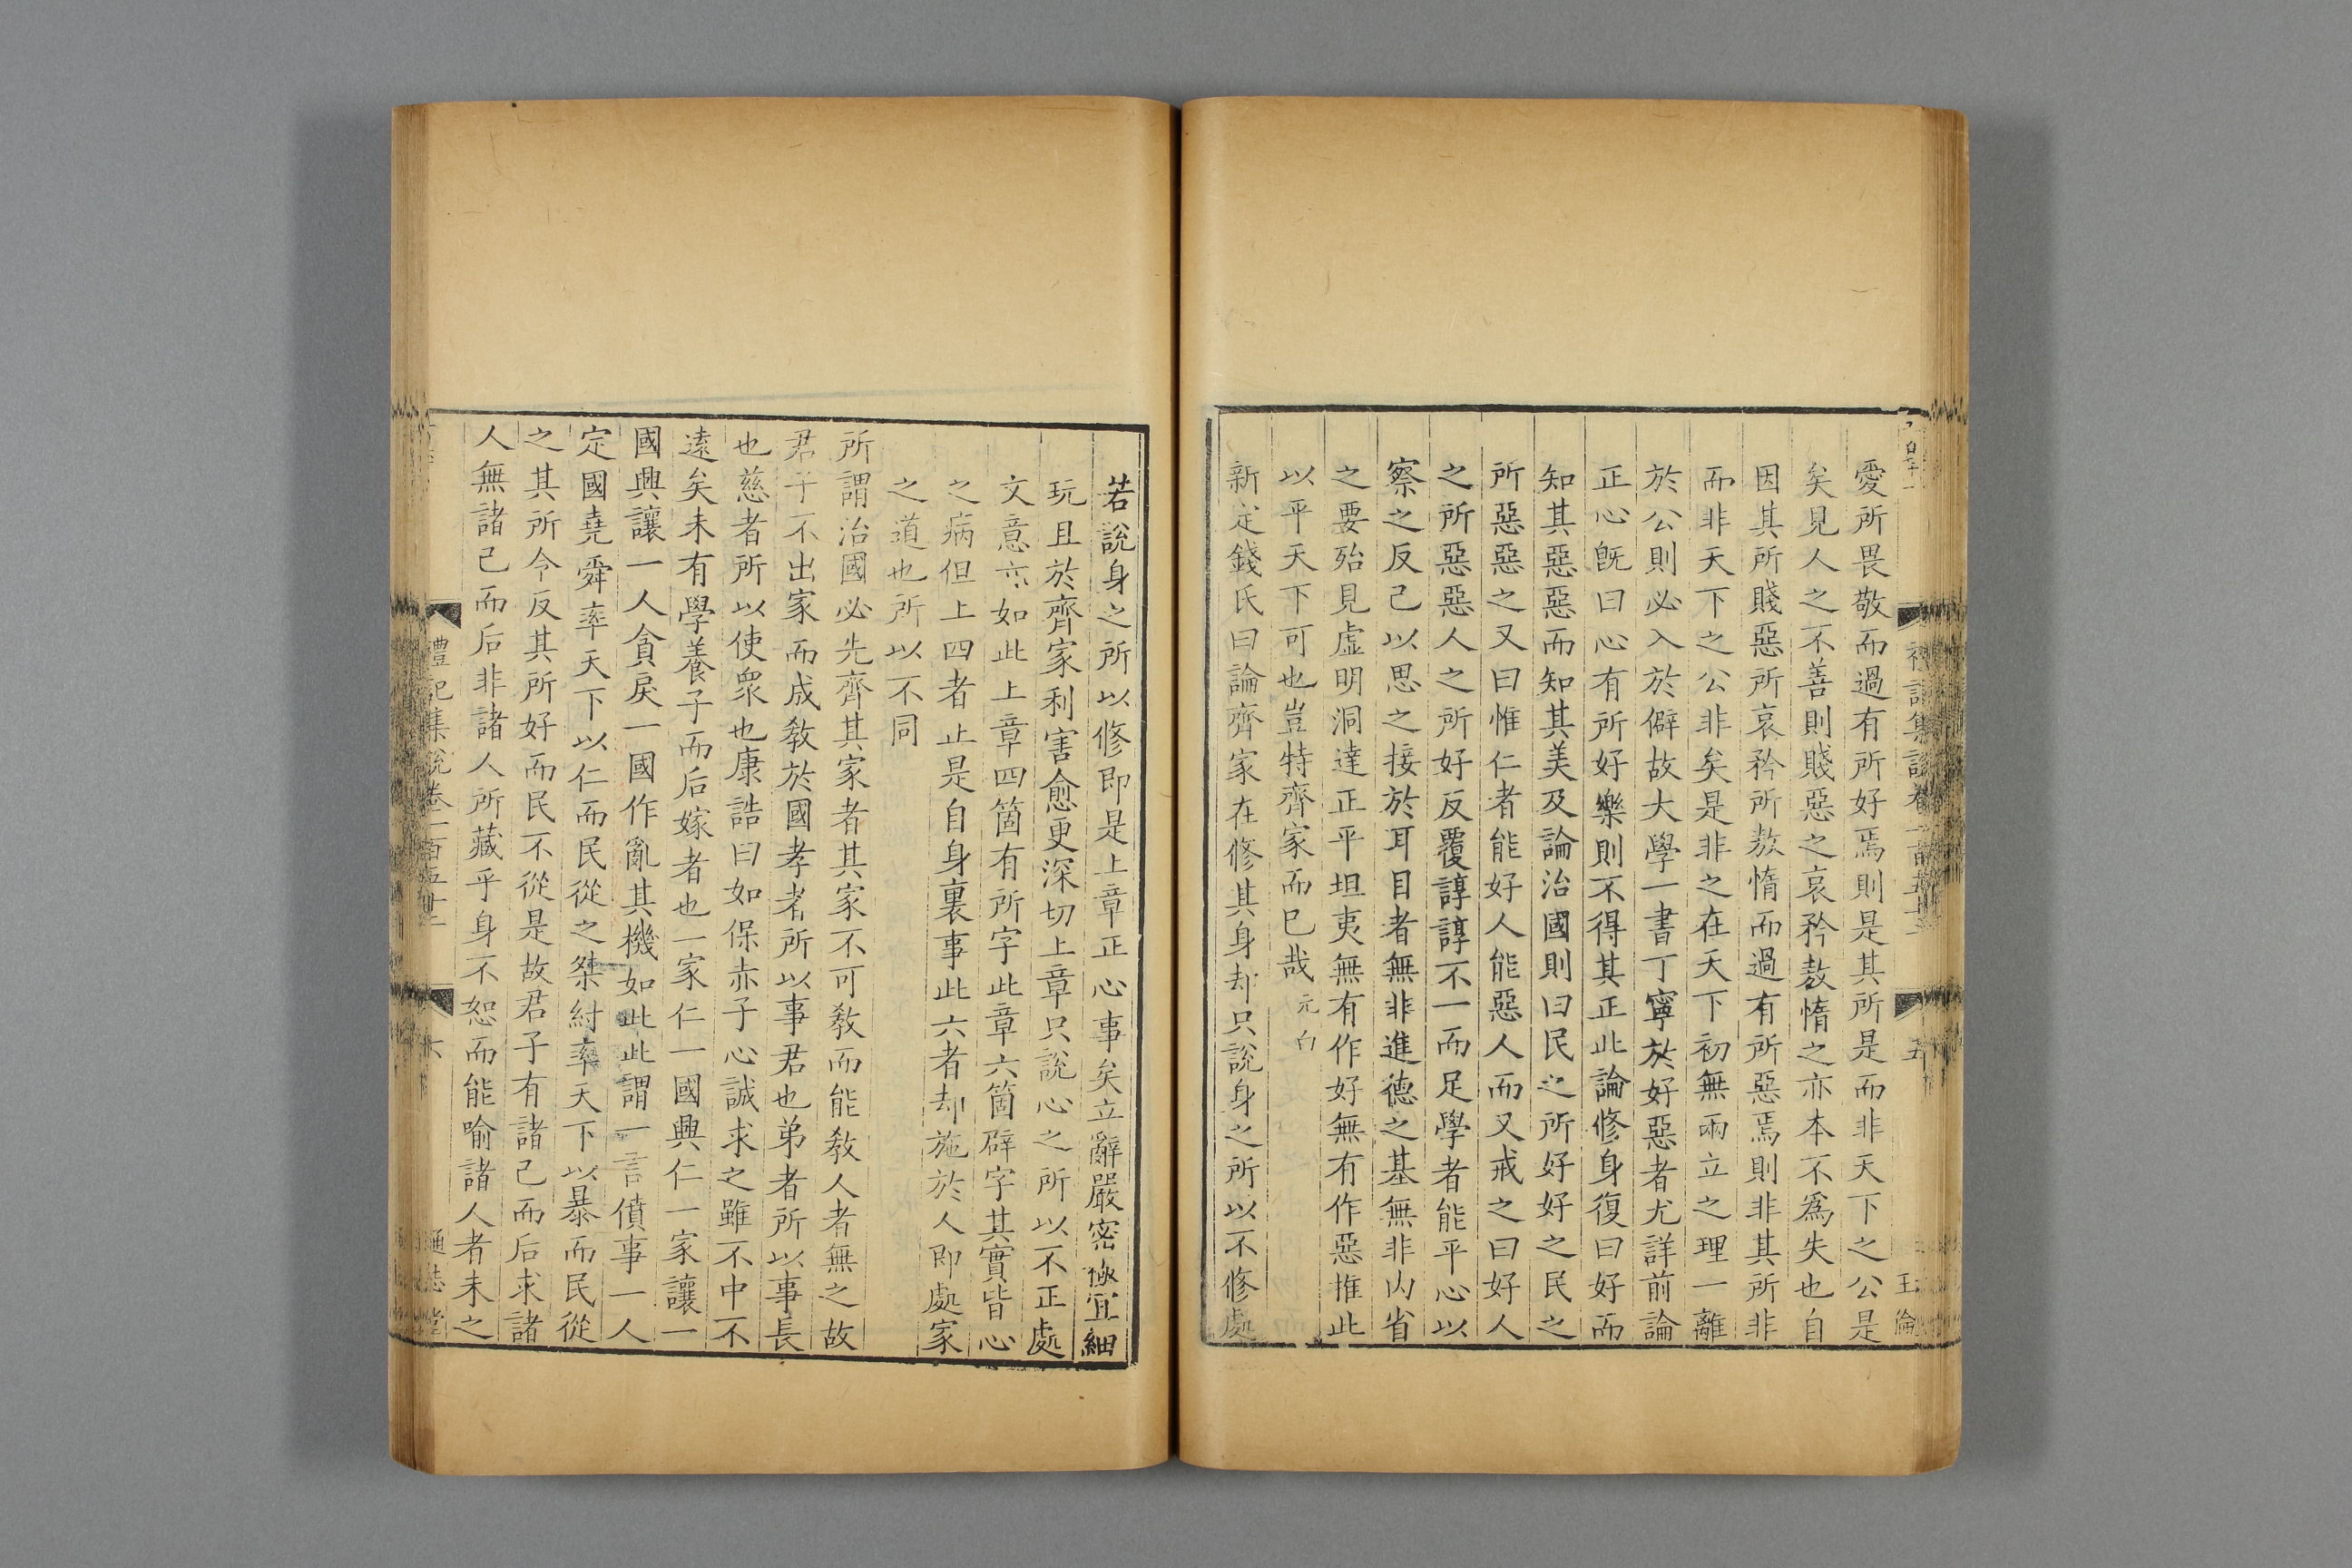 愛所畏敬而過有所好焉則是其所是而非天下之公是
矣見人之不善則賤惡之哀矜敖惰之亦本不為失也自
因其所賤惡所哀矜所敖惰而過有所惡焉則非其所非
而非天下之公非矣是非之在天下初無兩立之理一離
於公則必入於僻故大學一書丁寧於好惡者尤詳前論
正心旣曰心有所好樂則不得其正此論修身復曰好而
知其惡惡而知其美及論治國則曰民之所好好之民之
所惡惡之又曰惟仁者能好人能惡人而又戒之曰好人
之所惡惡人之所好反覆諄諄不一而足學者能平心以
察之反己以思之接於耳目者無非進德之基無非內省
之要殆見虛明洞達正平坦夷無有作好無有作惡推此
以平天下可也豈特齊家而已哉元白
新定錢氏曰論齊家在修其身却只說身之所以不修處
五
王倫
若說身之所以修即是上章正心事矣立辭嚴密極宜細
玩且於齊家利害愈更深切上章只說心之所以不正處
文意亦如此上章四箇有所字此章六箇辟字其實皆心
之病但上四者止是自身裏事此六者却施於人即處家
之道也所以不同
所謂治國必先齊其家者其家不可敎而能敎人者無之故
君子不出家而成敎於國孝者所以事君也弟者所以事長
也慈者所以使衆也康誥曰如保赤子心誠求之雖不中不
遠矣未有學養子而后嫁者也一家仁一國興仁一家讓一
國興讓一人貪戾一國作亂其機如此此謂一言僨事一人
定國堯舜率天下以仁而民從之桀紂率天下以暴而民從
之其所令反其所好而民不從是故君子有諸己而后求諸
人無諸己而后非諸人所藏乎身不恕而能喻諸人者未之
禮記集說卷一百五十一
六
通志堂